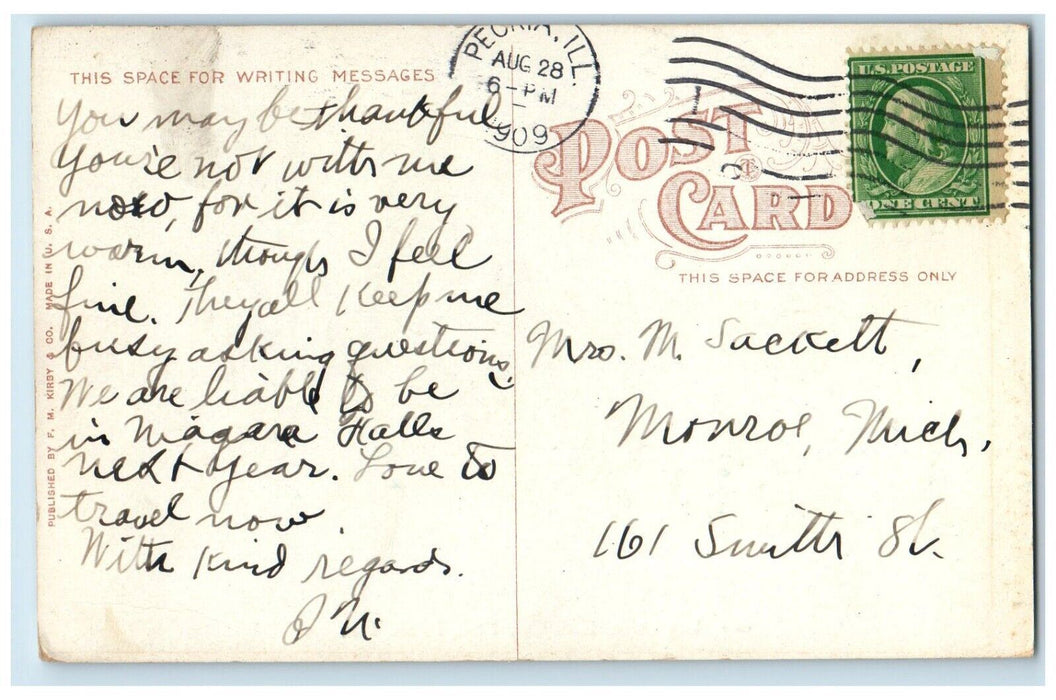 THIS SPACE FOR WRITING MESSAGES
You may be thankful
you're not with me
now, for it is very
warm, though I feel
fine. They all keep me
busy asking questions.
We are liable to be
in Niagara Falls
next year. Love to
travel now.
With kind regards.
PUBLISHED BY F. M. KIRBY & CO. MADE IN U. S. A.
PEORIA, ILL.
AUG 28
6-PM
1909
U.S. POSTAGE
ONE CENT
POST CARD
THIS SPACE FOR ADDRESS ONLY
Mrs. M. Sackett,
Monroe, Mich.
161 Smith St.